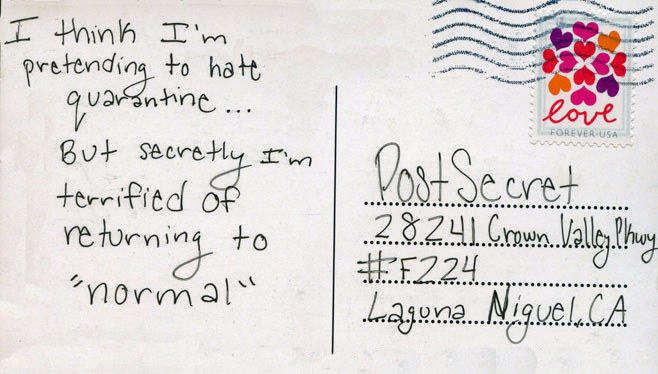 I think I'm
pretending to hate
quarantine...
But secretly I'm
terrified of
returning to
"normal"
love
FOREVER-USA
PostSecret
28241 Crown Valley Pkwy
#F224
Laguna Niguel, CA